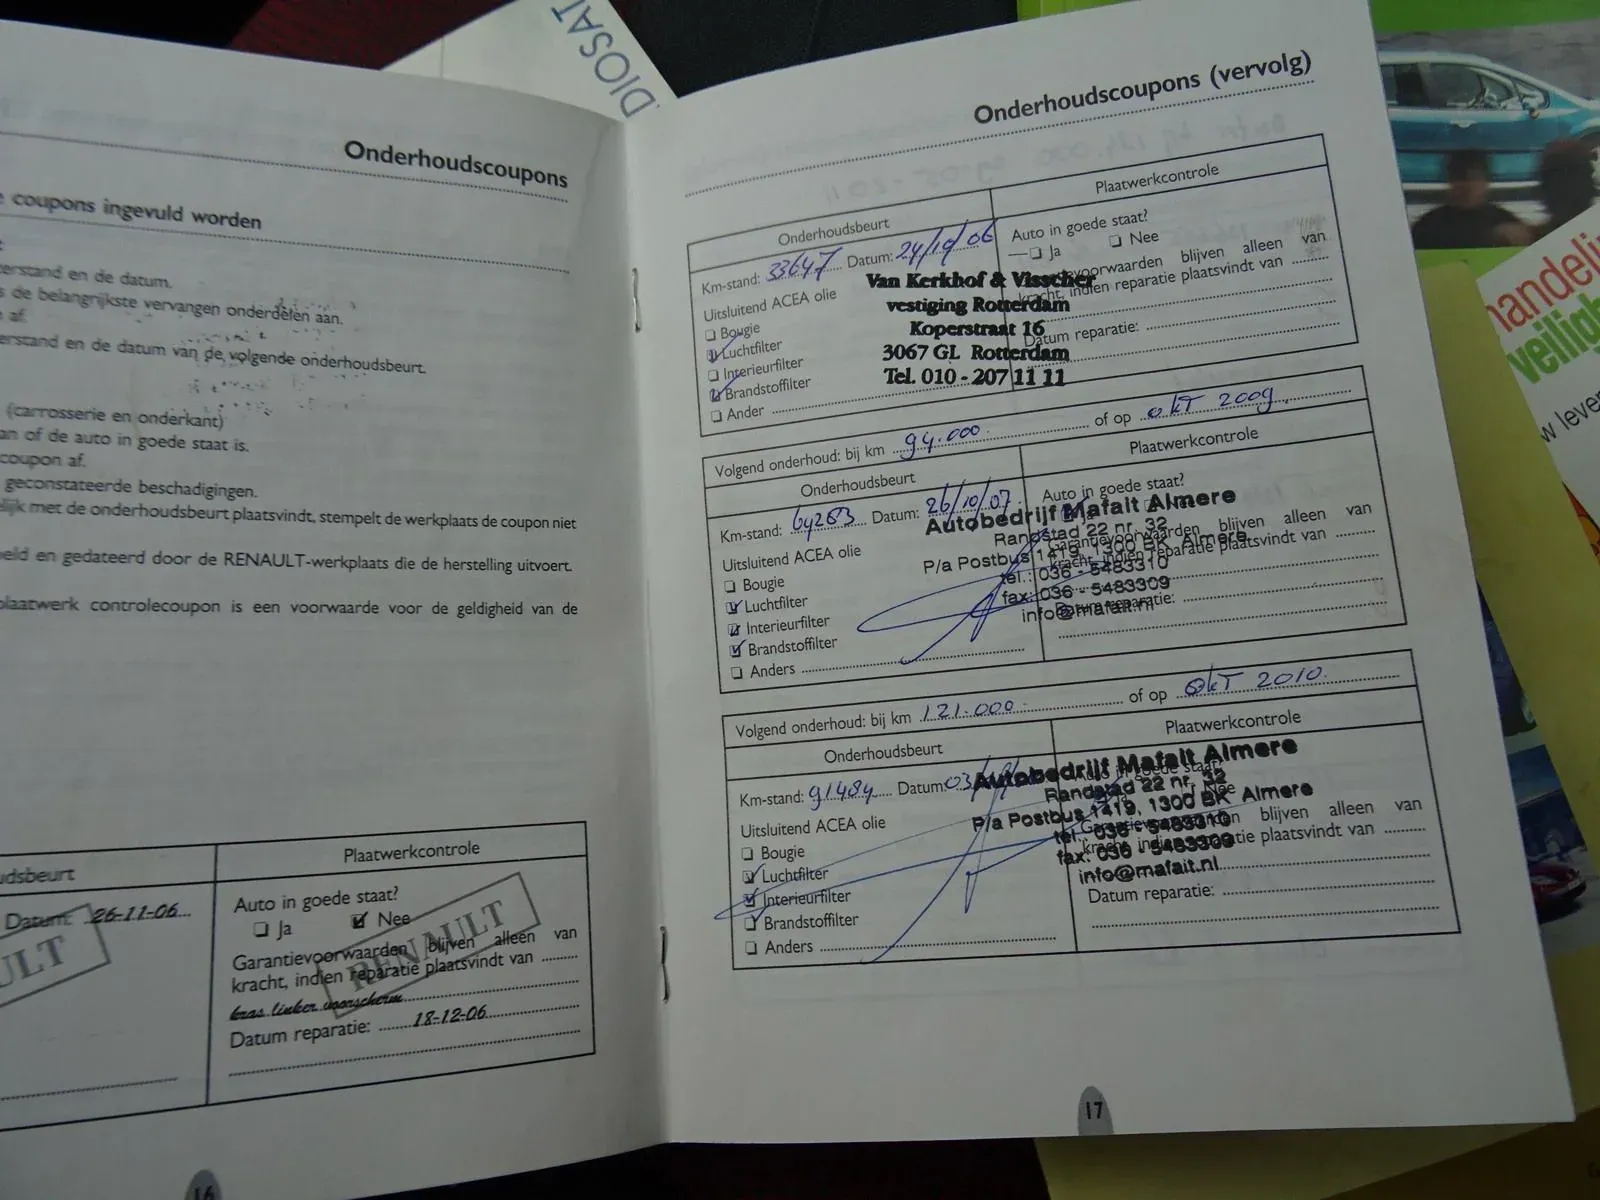 DIOSAT
Onderhoudscoupons
coupons ingevuld worden
erstand en de datum.
de belangrijkste vervangen onderdelen aan.
af.
erstand en de datum van de volgende onderhoudsbeurt.
(carrosserie en onderkant)
an of de auto in goede staat is.
coupon af.
geconstateerde beschadigingen.
lijk met de onderhoudsbeurt plaatsvindt, stempelt de werkplaats de coupon niet
eld en gedateerd door de RENAULT-werkplaats die de herstelling uitvoert.
plaatwerk controlecoupon is een voorwaarde voor de geldigheid van de
dsbeurt
Plaatwerkcontrole
Datum: 26-11-06
ULT
Auto in goede staat?
Ja Nee
RENAULT
Garantievoorwaarden blijven alleen van
kracht, indien reparatie plaatsvindt van
kras linker voorscherm
Datum reparatie: 18-12-06
16
Onderhoudscoupons (vervolg)
Onderhoudsbeurt
Plaatwerkcontrole
Km-stand: 33647 Datum: 24/10/06
Auto in goede staat?
Ja Nee
Uitsluitend ACEA olie
Bougie
Luchtfilter
Interieurfilter
Brandstoffilter
Ander
Van Kerkhof & Visscher
vestiging Rotterdam
Koperstraat 16
3067 GL Rotterdam
Tel. 010 - 207 11 11
voorwaarden blijven alleen van
kracht, indien reparatie plaatsvindt van
Datum reparatie:
Volgend onderhoud: bij km 94.000 of op okt 2009
Onderhoudsbeurt
Plaatwerkcontrole
Km-stand: 64283 Datum: 26/10/07
Auto in goede staat?
Uitsluitend ACEA olie
Bougie
Luchtfilter
Interieurfilter
Brandstoffilter
Anders
Autobedrijf Mafait Almere
Randstad 22 nr. 32
P/a Postbus 1419, 1300 BK Almere
tel.: 036 - 5483310
fax: 036 - 5483309
info@mafait.nl
Garantievoorwaarden blijven alleen van
kracht, indien reparatie plaatsvindt van
Datum reparatie:
Volgend onderhoud: bij km 121.000 of op okt 2010
Onderhoudsbeurt
Plaatwerkcontrole
Km-stand: 91484 Datum: 03/
Uitsluitend ACEA olie
Bougie
Luchtfilter
Interieurfilter
Brandstoffilter
Anders
Autobedrijf Mafait Almere
Randstad 22 nr. 32
P/a Postbus 1419, 1300 BK Almere
tel.: 036 - 5483310
fax: 036 - 5483309
info@mafait.nl
Auto in goede staat?
Nee
Garantievoorwaarden blijven alleen van
kracht, indien reparatie plaatsvindt van
Datum reparatie:
17
handelin
veiligh
w leve